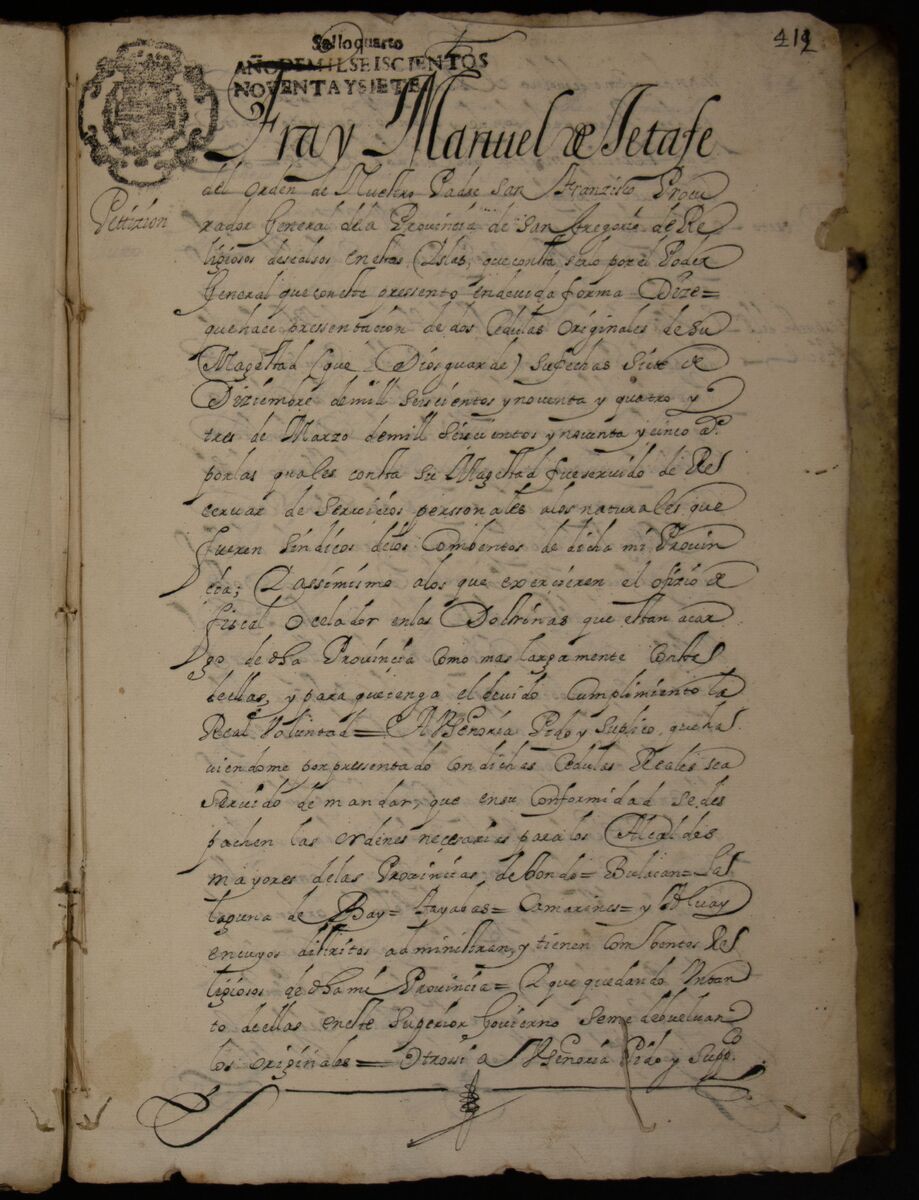 Sello quarto
AÑO DE MIL SEISCIENTOS
NOVENTA Y SIETE
412
Fray Manuel de Jetafe
Petizion
del orden de Nuestro Padre San Franzisco Procu
rador General dela Provinçia de San Gregorio de Re
ligiosos descalsos en estas Yslas, que consta serlo por el Poder
General que con este pressento en devida forma Dize=
que haçe pressentaçion de dos Cedulas originales de su
Magestad (que Dios guarde) sus fechas siete de
Diziembre de mill seiscientos y noventa y quatro y
tres de Marzo de mill seiscientos y noventa y cinco as.
por las quales consta su Magestad fue servido de Res
cervar de servicios perssonales alos naturales que
fueren sindicos delos Combentos de dicha mi Provin
cia; Y assimismo alos que exercieren el ofizio de
fiscal o celador en las Doctrinas que estan acar
go de dha Provinçia como mas largamente const
de ellas, y para que tenga el devido cumplimiento la
Real Voluntad= A VSSenoria Pido y suplico, queha
viendome por pressentado con dichas Cedulas Reales sea
servido de mandar, que en su conformidad se des
pachen las ordenes necesarias para los Alcaldes
mayores delas Provinçias de tondo= Bulacan= La
laguna de Bay= tayabas= Camarines= y Albay
en cuyos distritos administran, y tienen combentos Re
ligiosos de dha mi Provinçia= Y que quedando
to de ellas en este Superior Govierno seme debuelvan
los originales= Otrossi a VSSenoria Pido y suppco.